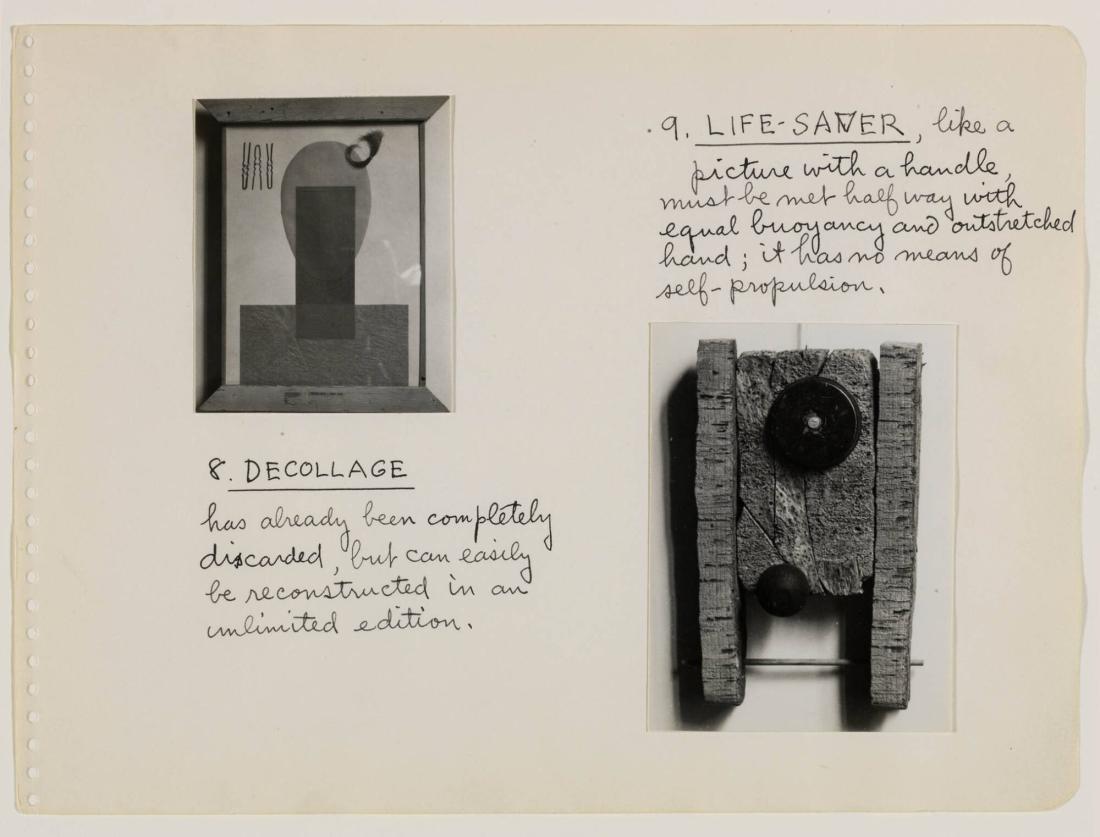 8. DECOLLAGE
has already been completely
discarded, but can easily
be reconstructed in an
unlimited edition.
9. LIFE-SAVER, like a
picture with a handle,
must be met half way with
equal buoyancy and outstretched
hand; it has no means of
self-propulsion.